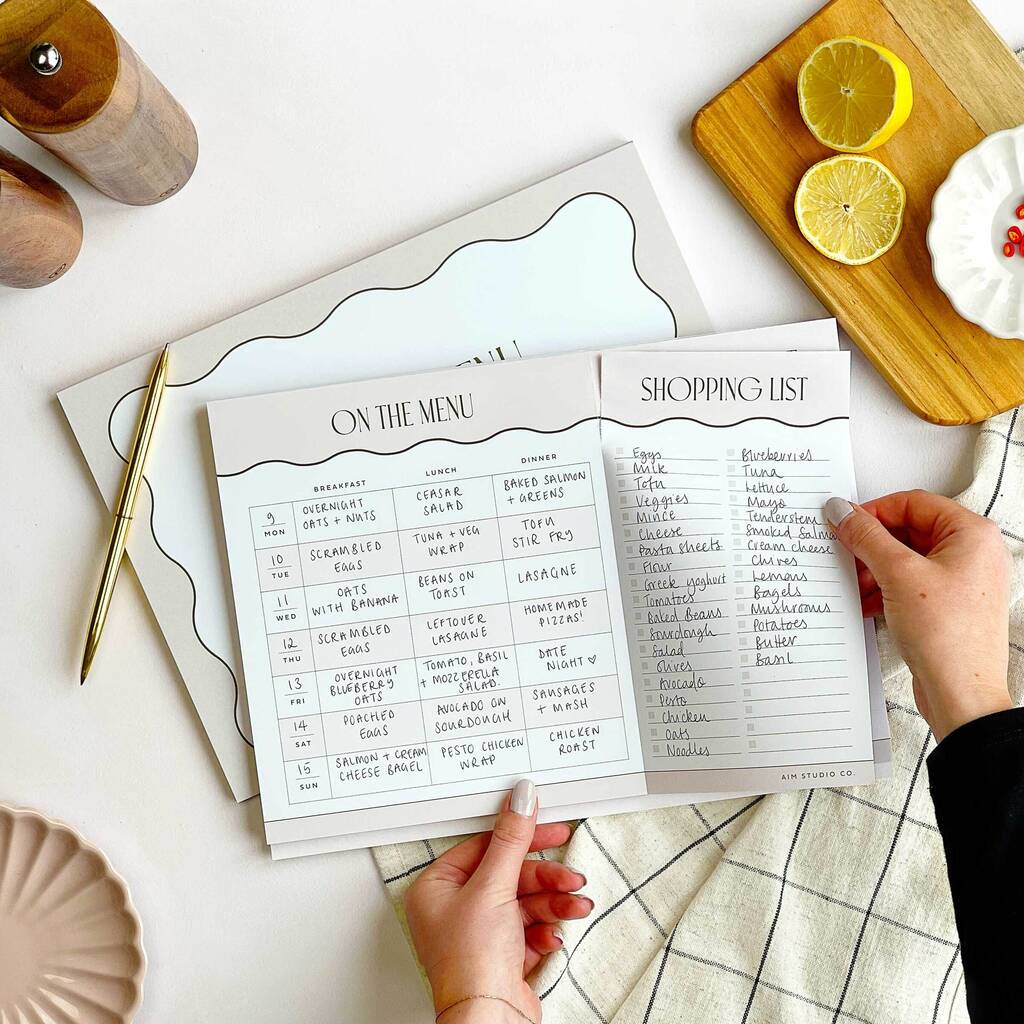 ENU
ON THE MENU
BREAKFAST LUNCH DINNER
9
MON
OVERNIGHT
OATS + NUTS
CEASAR
SALAD
BAKED SALMON
+ GREENS
10
TUE
SCRAMBLED
EGGS
TUNA + VEG
WRAP
TOFU
STIR FRY
11
WED
OATS
WITH BANANA
BEANS ON
TOAST
LASAGNE
12
THU
SCRAMBLED
EGGS
LEFTOVER
LASAGNE
HOMEMADE
PIZZAS!
13
FRI
OVERNIGHT
BLUEBERRY
OATS
TOMATO, BASIL
+ MOZZERELLA
SALAD.
DATE
NIGHT ♡
14
SAT
POACHED
EGGS
AVOCADO ON
SOURDOUGH
SAUSAGES
+ MASH
15
SUN
SALMON + CREAM
CHEESE BAGEL
PESTO CHICKEN
WRAP
CHICKEN
ROAST
SHOPPING LIST
Eggs
Milk
Tofu
Veggies
Mince
Cheese
Pasta sheets
Flour
Greek yoghurt
Tomatoes
Baked Beans
Sourdough
Salad
Olives
Avocado
Pesto
Chicken
Oats
Noodles
Blueberries
Tuna
Lettuce
Mayo
Tenderstem
Smoked Salmo
Cream cheese
Chives
Lemons
Bagels
Mushrooms
Potatoes
Butter
Basil
AIM STUDIO CO.